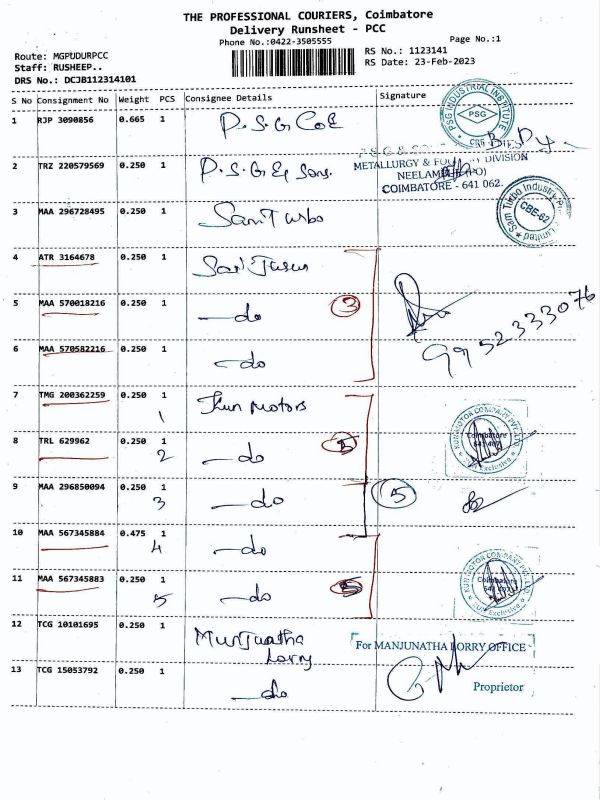 THE PROFESSIONAL COURIERS, Coimbatore
Delivery Runsheet - PCC
Phone No.:0422-3505555
Page No.:1
Route: MGPUDURPCC
RS No.: 1123141
Staff: RUSHEEP..
RS Date: 23-Feb-2023
DRS No.: DCJB112314101
S No Consignment No Weight PCS Consignee Details Signature
PSG INDUSTRIAL INSTITUTE
PSG
1 RJP 3090856 0.665 1 P.S.G CoE
2 TRZ 220579569 0.250 1 P.S.G & Sons.
METALLURGY & FOUNDRY DIVISION
NEELAMBUR (PO)
COIMBATORE - 641 062.
3 MAA 296728495 0.250 1 Sam Turbo
Sam Turbo Industry Private Limited
CBE-62
4 ATR 3164678 0.250 1
5 MAA 570018216 0.250 1 —do 3
9952333076
6 MAA 570582216 0.250 1 —do
7 TMG 200362259 0.250 1 Kun Motors
1
KUN MOTOR COMPANY PVT. LTD
Coimbatore
8 TRL 629962 0.250 1 —do
2
9 MAA 296850094 0.250 1 —do 5
3
10 MAA 567345884 0.475 1 —do
4
KUN MOTOR COMPANY PVT. LTD
Coimbatore
11 MAA 567345883 0.250 1 —do
5
12 TCG 10101695 0.250 1 Munjunatha
Lorry
For MANJUNATHA LORRY OFFICE
13 TCG 15053792 0.250 1 —do
Proprietor